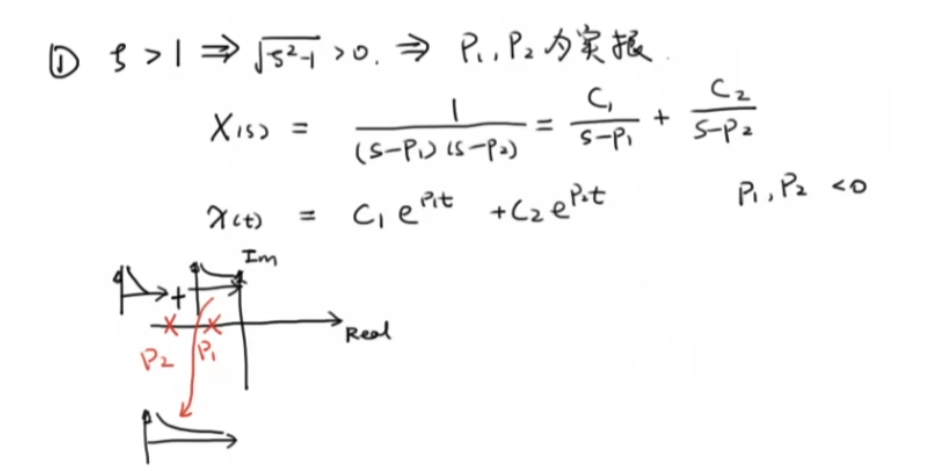 ① ξ > 1 ⇒ √ξ²-1 > 0. ⇒ P₁, P₂ 为实根.
X(s) = 1/((s-P₁)(s-P₂)) = C₁/(s-P₁) + C₂/(s-P₂)
x(t) = C₁e^{P₁t} + C₂e^{P₂t} P₁, P₂ <0
Im
+
Real
P₂ P₁